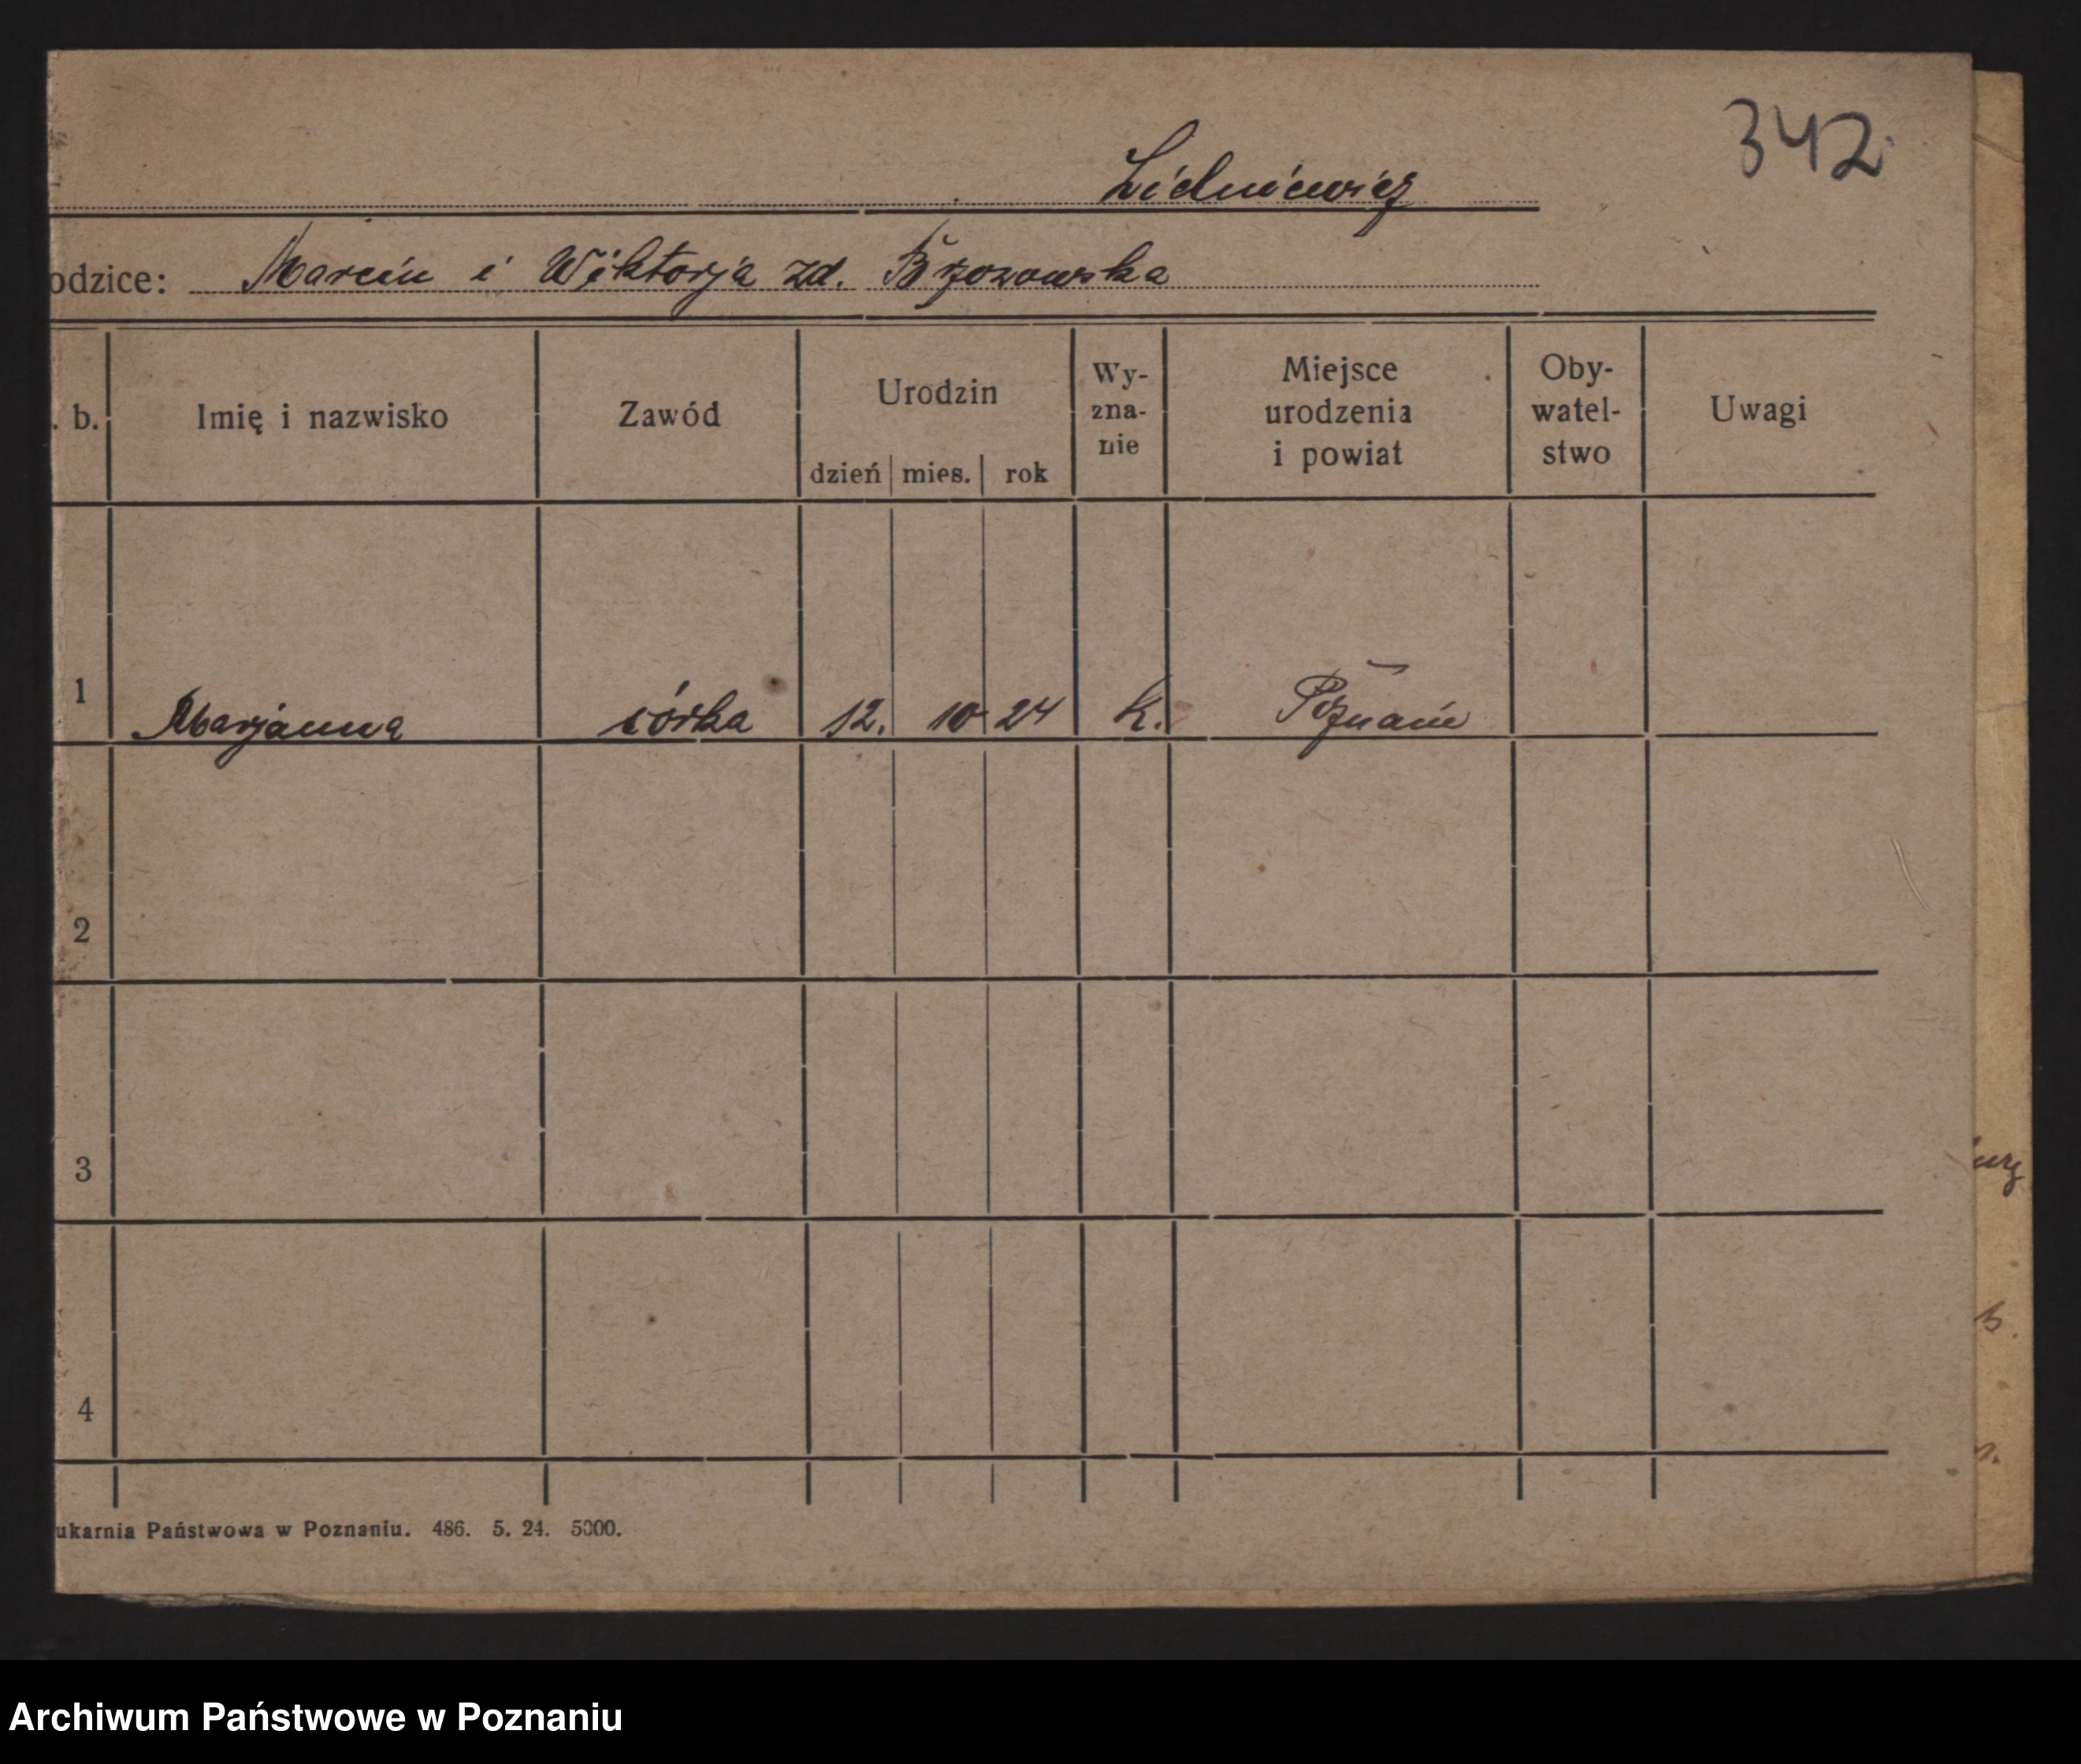 342
odzice: Marcin i Wiktorja zd. Brzozowska
. b. Imię i nazwisko Zawód Urodzin dzień mies. rok Wy-zna-nie Miejsce urodzenia i powiat Oby-watel-stwo Uwagi
1 Marjanna córka 12. 10 24 k. Poznań
2
3
4
ukarnia Państwowa w Poznaniu. 486. 5. 24. 5000.
Archiwum Państwowe w Poznaniu